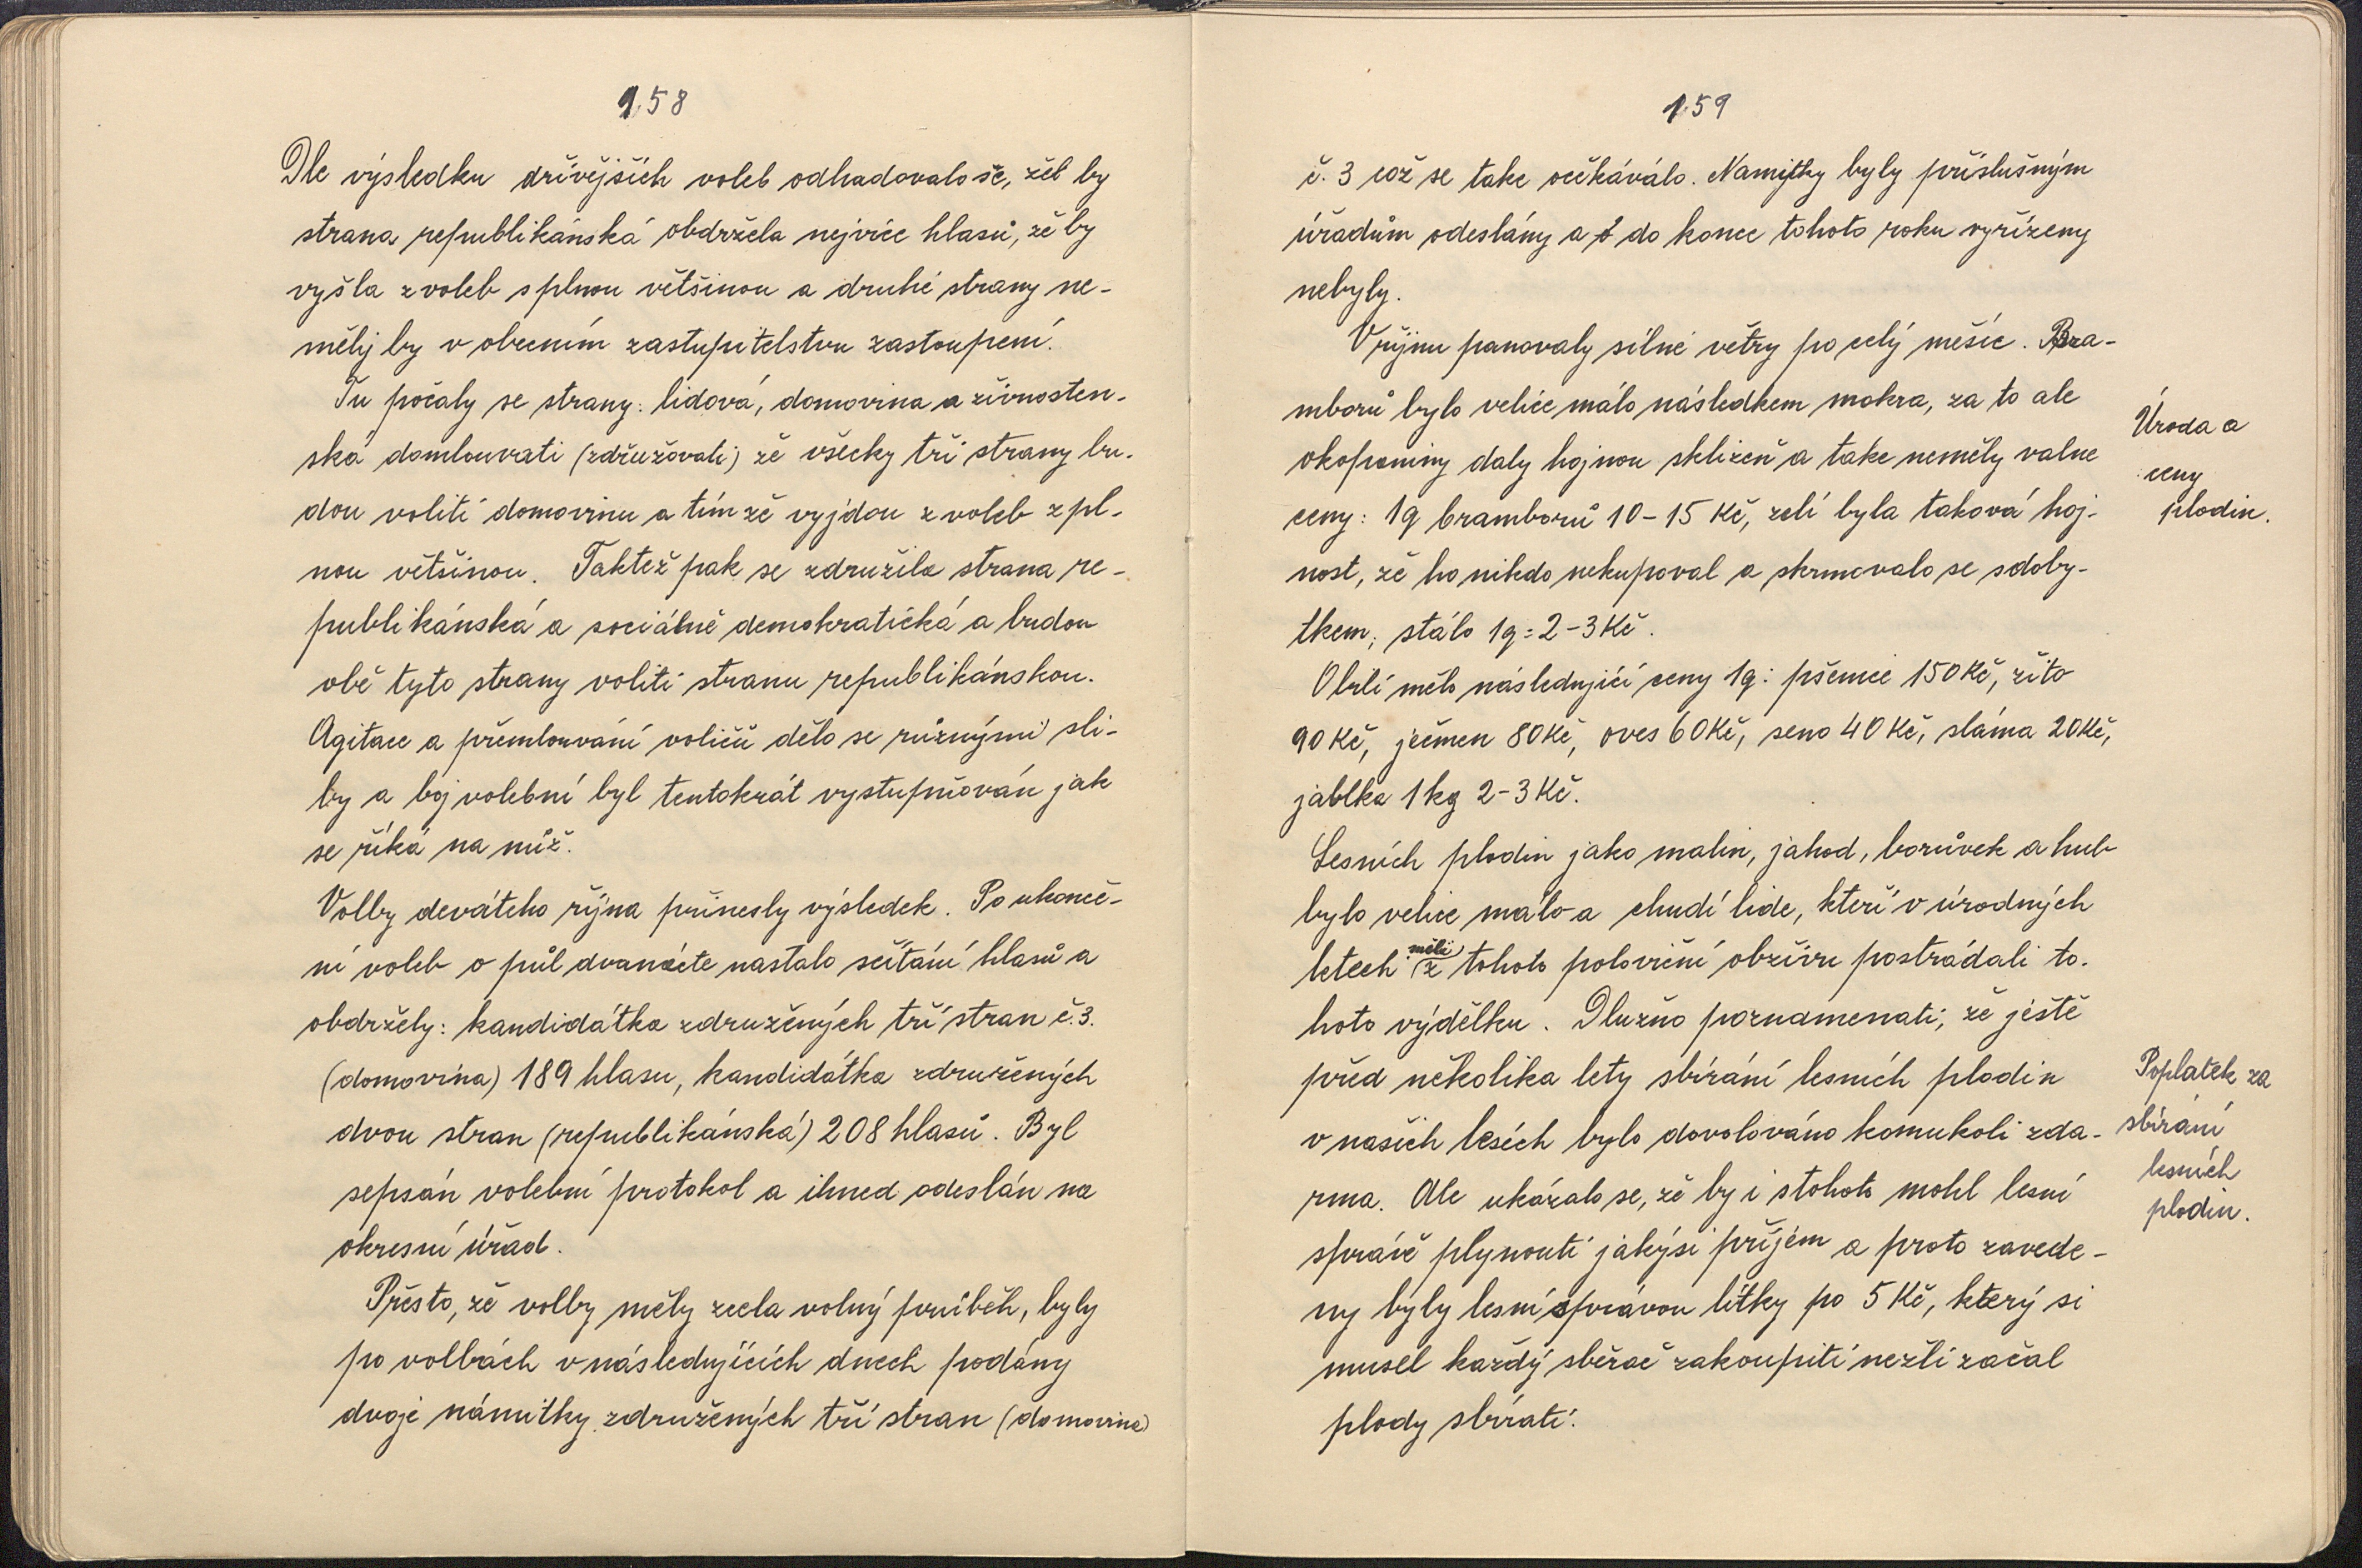 158
Dle výsledku dřívějších voleb odhadovalo se, žeb by
strana republikánská obdržela nejvíce hlasů, že by
vyšla z voleb s plnou většinou a druhé strany ne-
měly by v obecním zastupitelstvu zastoupení.
Tu počaly se strany: lidová, domovina a živnosten-
ská domlouvati (združovali) že všecky tři strany bu-
dou voliti domovinu a tím že vyjdou z voleb z pl-
nou většinou. Taktež pak se združila strana re-
publikánská a sociálně demokratická a budou
obě tyto strany voliti stranu republikánskou.
Agitace a přemlouvání voličů dělo se různými sli-
by a boj volební byl tentokrát vystupňován jak
se říká na nůž.
Volby devátého října přinesly výsledek. Po ukonče-
ní voleb o půl dvanácte nastalo sčítání hlasů a
obdržely: kandidátka združených tří stran č.3.
(domovina) 189 hlasu, kandidátka združených
dvou stran (republikánská) 208 hlasů. Byl
sepsán volební protokol a ihned odeslán na
okresní úřad.
Přesto, že volby měly zcela volný průběh, byly
po volbách v následujících dnech podány
dvoje námitky združených tří stran (domovina)
159
č. 3 což se take očkáválo. Namitky byly příslušným
úřadům odeslány a do konce tohoto roku vyřízeny
nebyly.
V říjnu panovaly silné větry po celý měsíc. Bra-
mborů bylo velice málo následkem mokra, za to ale
okopaniny daly hojnou sklizeň a take neměly valne
ceny: 1q bramborů 10-15 Kč, zelí byla taková hoj-
nost, že ho nikdo nekupoval a skrmovalo se s doby-
tkem; stálo 1q=2-3Kč.
Obilí mělo následující ceny 1q: pšenice 150Kč, žito
90Kč, ječmen 80Kč, oves 60Kč, seno 40Kč, sláma 20Kč,
jablka 1kg 2-3Kč.
Úroda a
ceny
plodin.
Lesních plodin jako malin, jahod, borůvek a hub
bylo velice málo a chudí lide, kteří v úrodných
letech měli z tohoto poloviční obživu postrádali to-
hoto výdělku. Dlužno poznamenati, že ještě
před několika lety sbírání lesních plodin
v našich lesích bylo dovolováno komukoli zda-
rma. Ale ukázalo se, že by i s tohoto mohl lesní
správě plynouti jakýsi příjem a proto zavede-
ny byly lesní správou lítky po 5 Kč, který si
musel každý sběrač zakoupiti nežli začal
plody sbírati.
Poplatek za
sbírání
lesních
plodin.